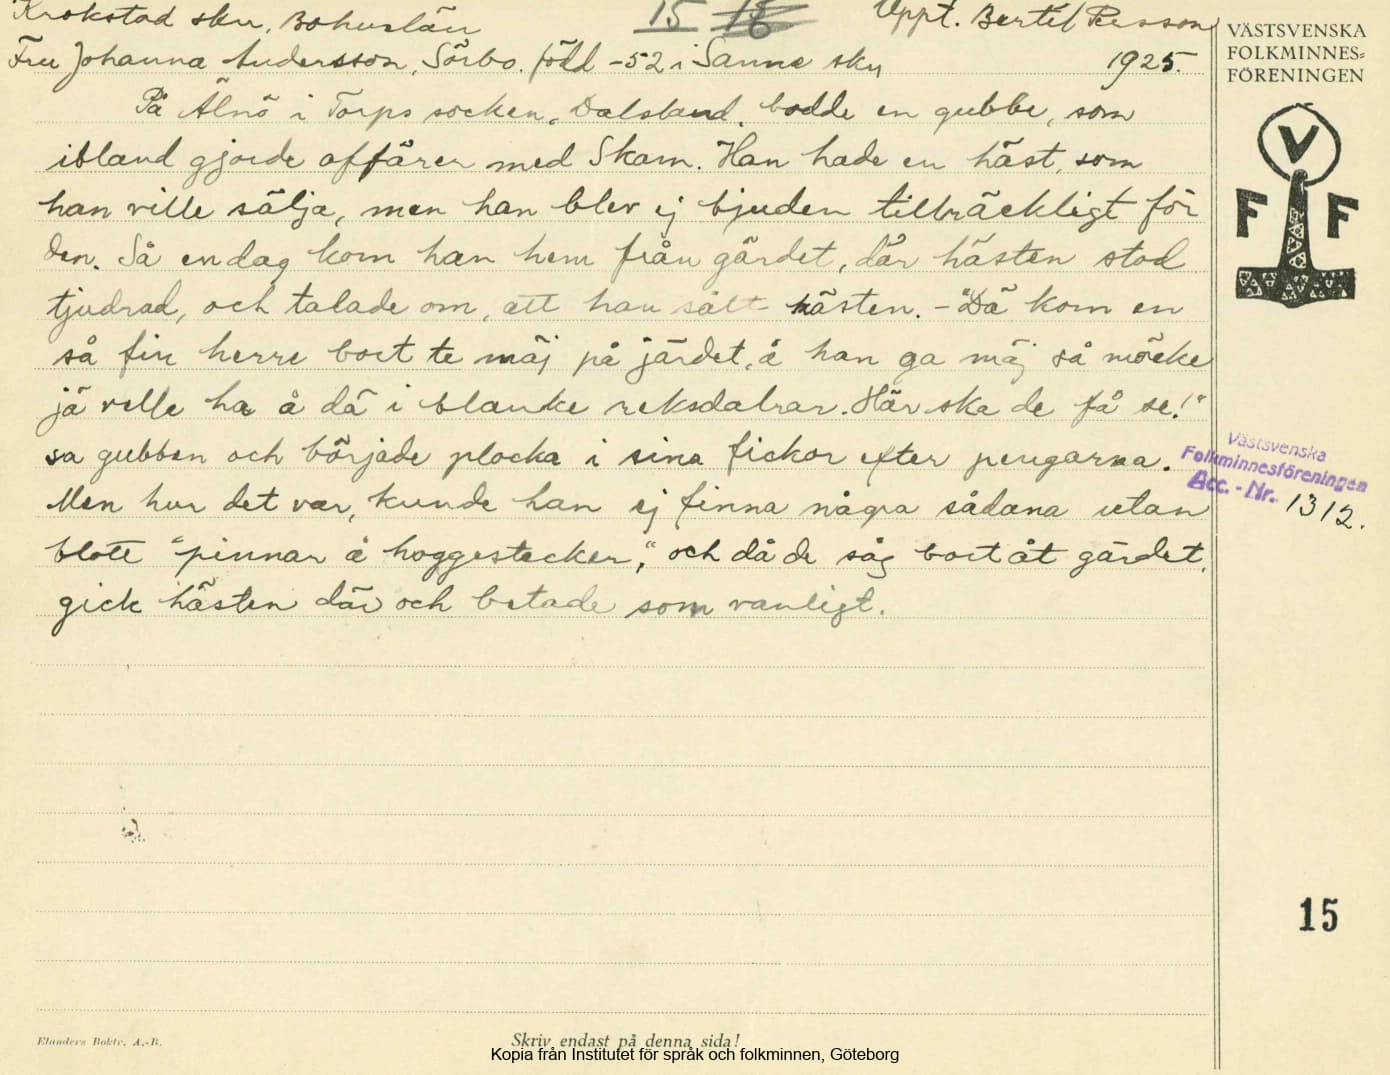 Krokstad skn, Bohuslän 15 Uppt. Bertil Persson
Fru Johanna Andersson, Sörbo. född -52 i Sanne skn 1925.
På Älnö i Torps socken, Dalsland, bodde en gubbe, som
ibland gjorde affärer med Skam. Han hade en häst, som
han ville sälja, men han blev ej bjuden tillräckligt för
den. Så en dag kom han hem från gärdet, där hästen stod
tjudrad, och talade om, att han sålt hästen. - "Dä kom en
så fin herre bort te mäj på järdet, å han ga mäj så möcke
jä velle ha å dä i blanke reksdalrar. Här ska de få se!"
sa gubben och började plocka i sina fickor efter pengarna.
Men hur det var, kunde han ej finna några sådana utan
blott "pinnar å hoggestecker," och då de såg bortåt gärdet,
gick hästen där och betade som vanligt.
VÄSTSVENSKA
FOLKMINNES=
FÖRENINGEN
V
F F
Västsvenska
Folkminnesföreningen
Acc. - Nr. 1312.
15
Elanders Boktr. A.-B.
Skriv endast på denna sida!
Kopia från Institutet för språk och folkminnen, Göteborg